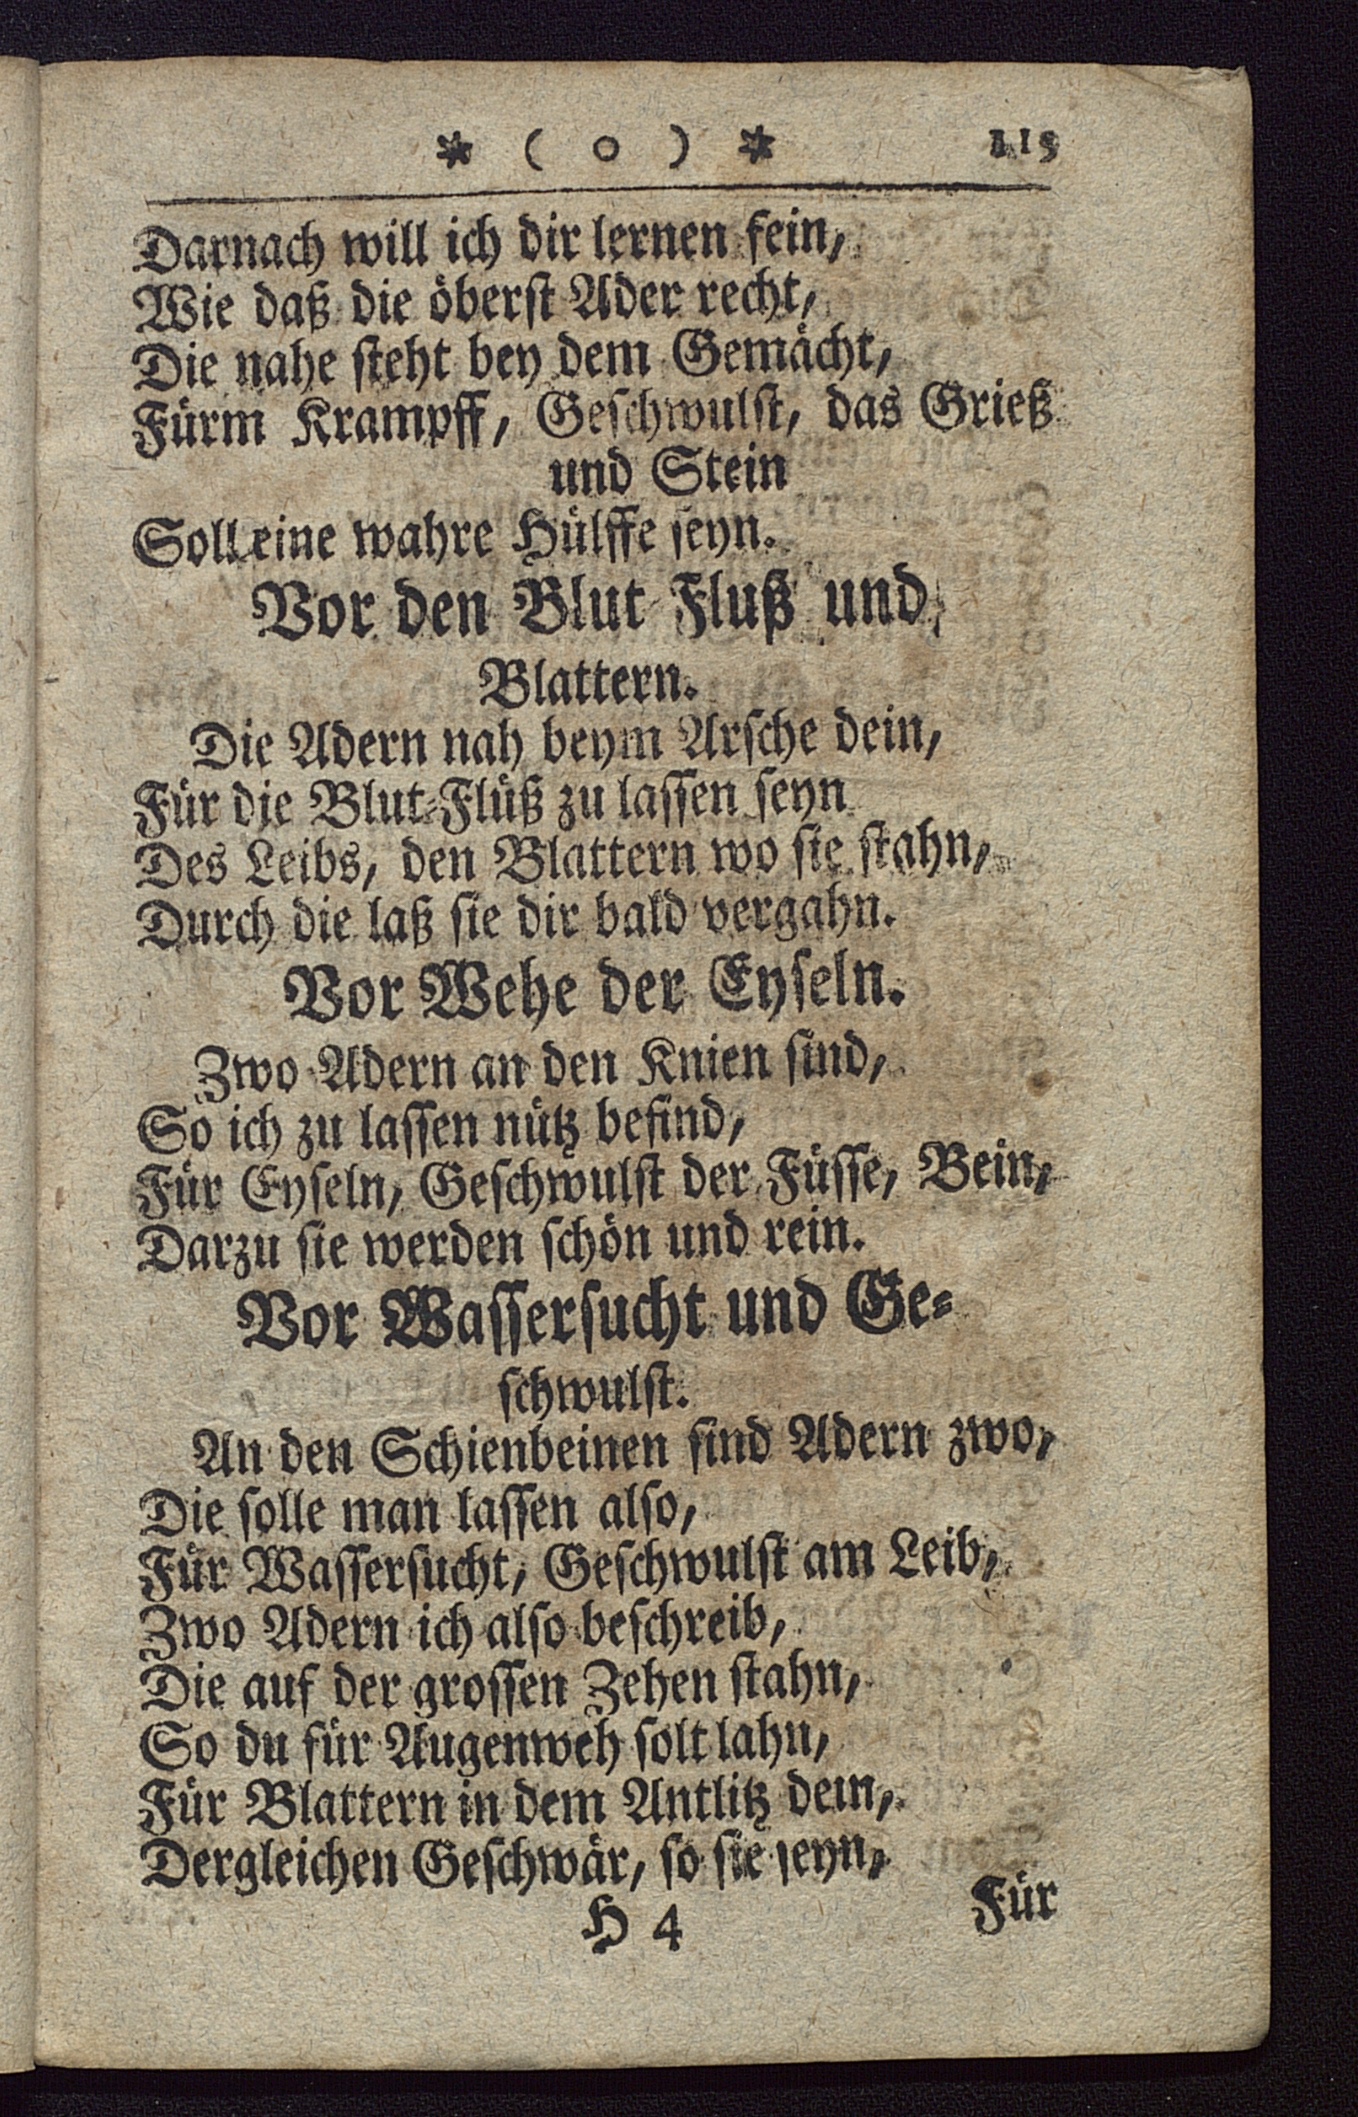 * ( o ) * 115
Darnach will ich dir lernen fein,
Wie daß die öberst Ader recht,
Die nahe steht bey dem Gemächt,
Fürm Krampff, Geschwulst, das Grieß
und Stein
Soll eine wahre Hülffe seyn.
Vor den Blut Fluß und
Blattern.
Die Adern nah beym Arsche dein,
Für die Blut-Flüß zu lassen seyn
Des Leibs, den Blattern wo sie stahn,
Durch die laß sie dir bald vergahn.
Vor Wehe der Eyseln.
Zwo Adern an den Knien sind,
So ich zu lassen nütz befind,
Für Eyseln, Geschwulst der Füsse, Bein,
Darzu sie werden schön und rein.
Vor Wassersucht und Ge-
schwulst.
An den Schienbeinen sind Adern zwo,
Die solle man lassen also,
Für Wassersucht, Geschwulst am Leib,
Zwo Adern ich also beschreib,
Die auf der grossen Zehen stahn,
So du für Augenweh solt lahn,
Für Blattern in dem Antlitz dein,
Dergleichen Geschwär, so sie seyn,
H 4 Für